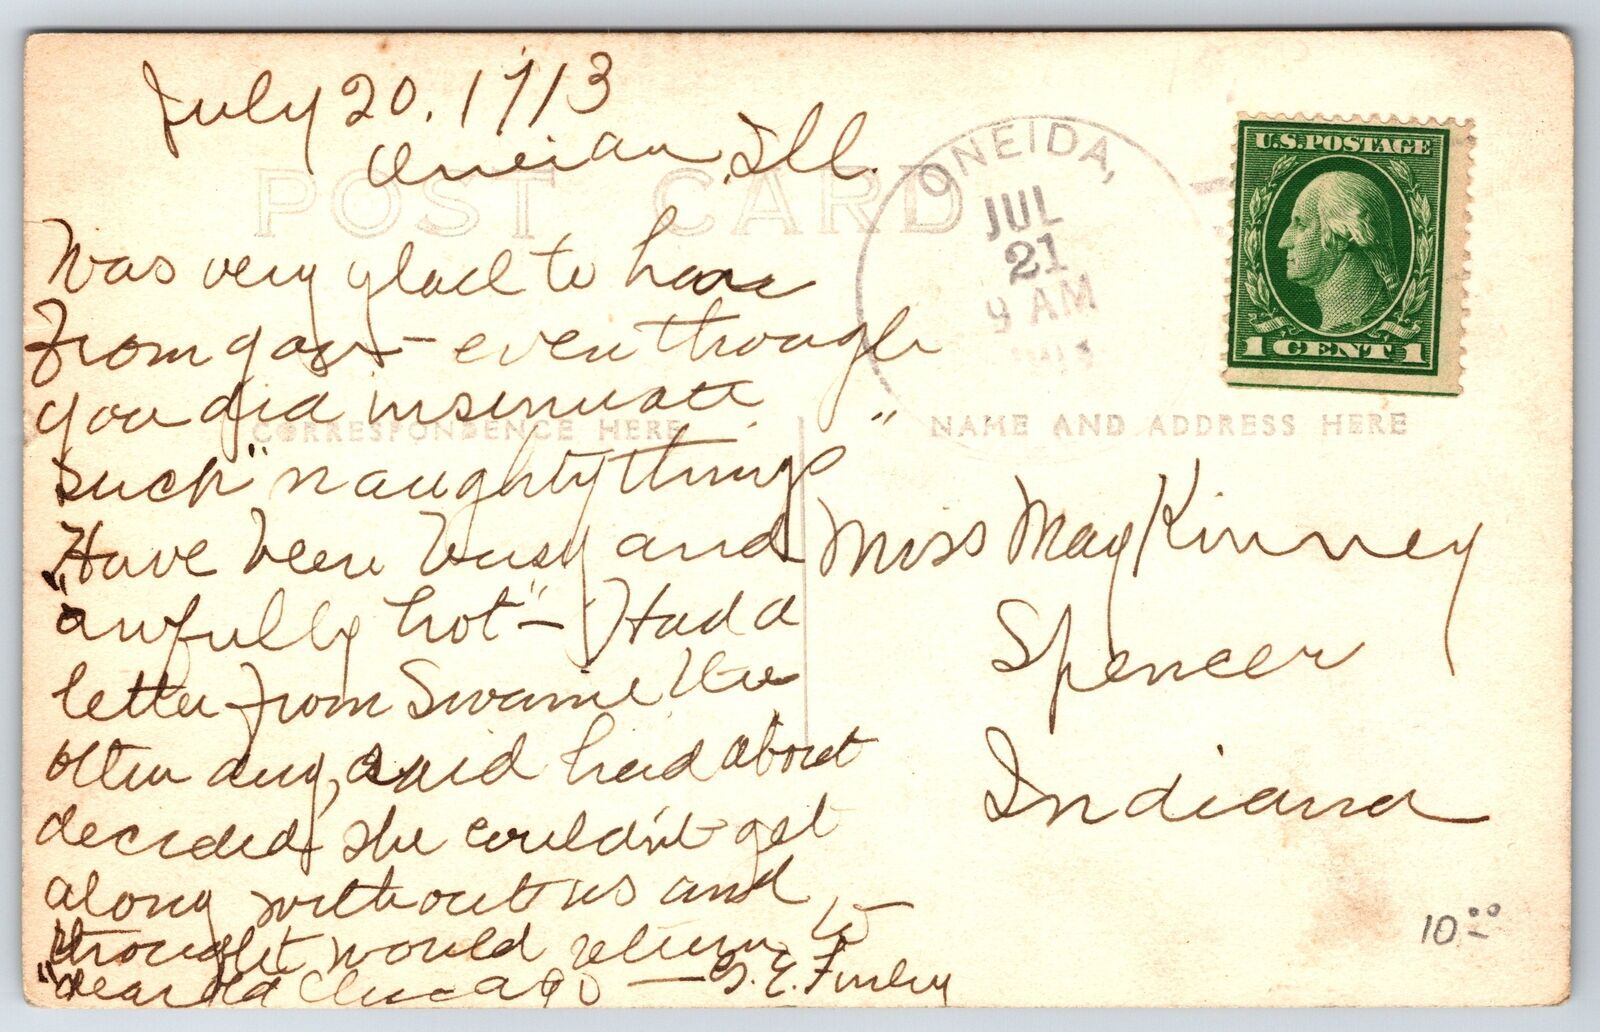 July 20, 1913
Ill.
POST CARD
ONEIDA,
JUL
21
9 AM
U.S. POSTAGE
1 CENT 1
CORRESPONDENCE HERE
NAME AND ADDRESS HERE
Was very glad to hear
from you – even though
you did insinuate
such "naughty things"
"Have been busy and
awfully hot" – Had a
letter from Swamie the
other day, said had about
decided she couldn't get
along without us and
thought would return to
"dear old Chicago – G. E. Finley
Miss May Kinney
Spencer
Indiana
10.00